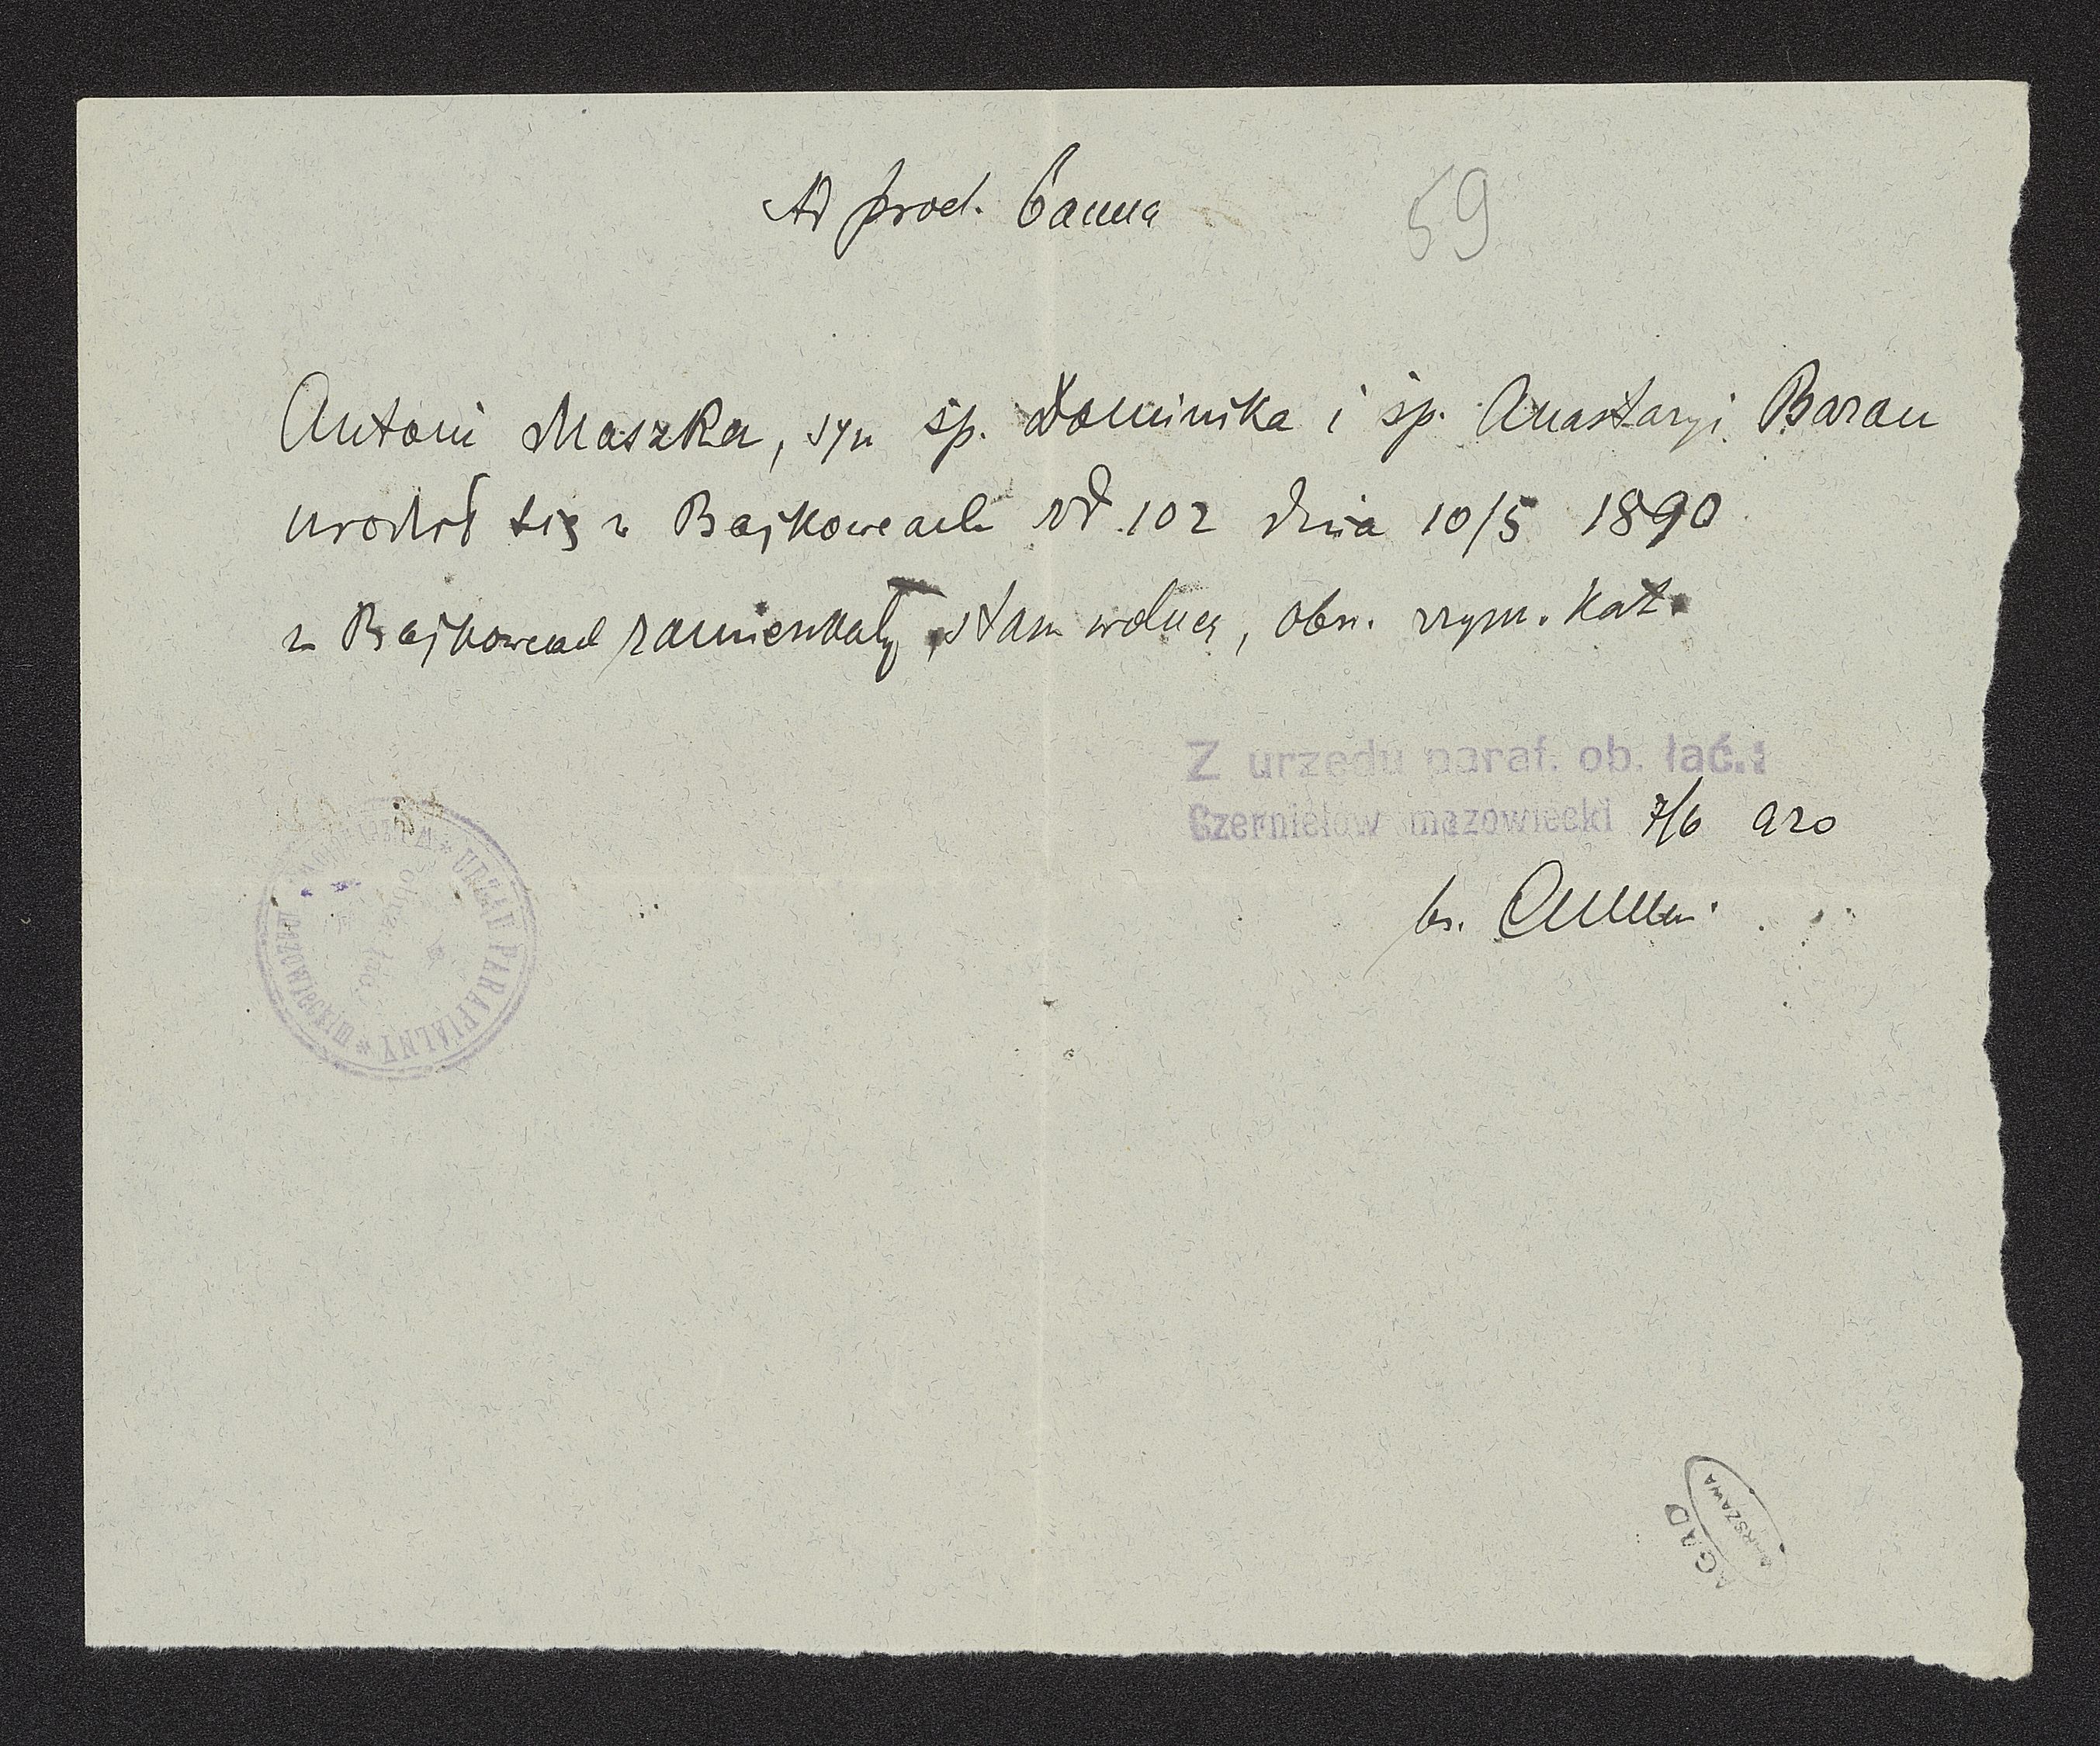 Ad prod. Canna
59
Antoni Maszka, syn śp. Dominika i śp. Anastazyi Baran
urodził się w Bajkowcach Nd 102 dnia 10/5 1890
w Bajkowcach zamieszkały, stan wolny, obrz. rzym. kat.
Z urzędu paraf. ob. łać.:
Czernielow mazowiecki 7/6 920
ks.
URZĄD PARAFIALNY
obrz. łać.
mazowieckim
AGAD
WARSZAWA